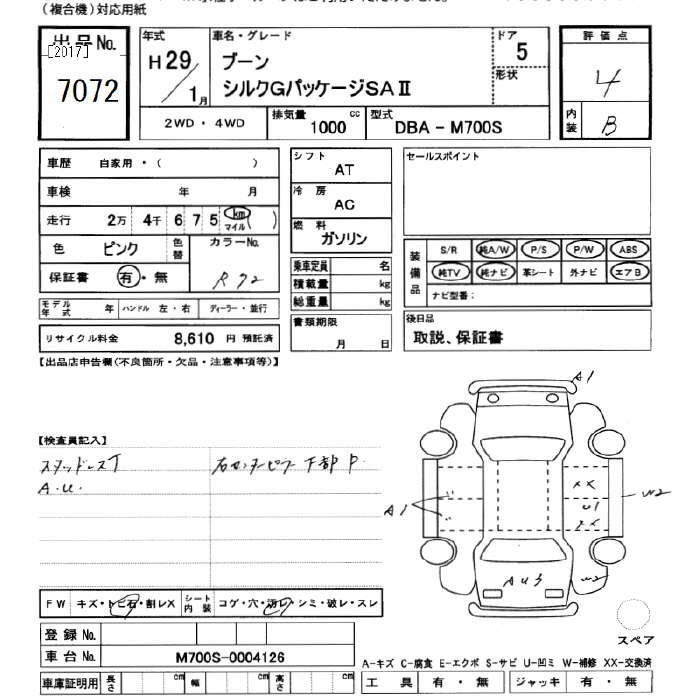 (複合機)対応用紙
出品No.
[2017]
7072
年式
H29/1月
車名・グレード
ブーン
シルクGパッケージSAⅡ
ドア
5
形状
評価点
4
内装
B
2WD・4WD
排気量
1000 cc
型式
DBA - M700S
車歴 自家用・( )
車検 年 月
走行 2万 4千 6 7 5 km マイル ( )
色 ピンク 色替
カラーNo.
R72
保証書 有・無
モデル年式 年 ハンドル 左・右 ディーラー・並行
リサイクル料金 8,610 円 預託済
シフト
AT
冷房
AC
燃料
ガソリン
乗車定員 名
積載量 kg
総重量 kg
書類期限
月 日
セールスポイント
装備品
S/R 純A/W P/S P/W ABS
純TV 純ナビ 革シート 外ナビ エアB
ナビ型番:
後日品
取説、保証書
【出品店申告欄(不良箇所・欠品・注意事項等)】
【検査員記入】
スタッドレスT
A.U.
右センターピラー下部P.
A1
A1
XX
U1
XX
W2
AU3
W2
スペア
FW キズ・トビ石・割レX シート内装 コゲ・穴・汚レ・シミ・破レ・スレ
登録No.
車台No. M700S-0004126
車庫証明用 長さ cm 幅 cm 高さ cm
A-キズ C-腐食 E-エクボ S-サビ U-凹ミ W-補修 XX-交換済
工具 有・無 ジャッキ 有・無